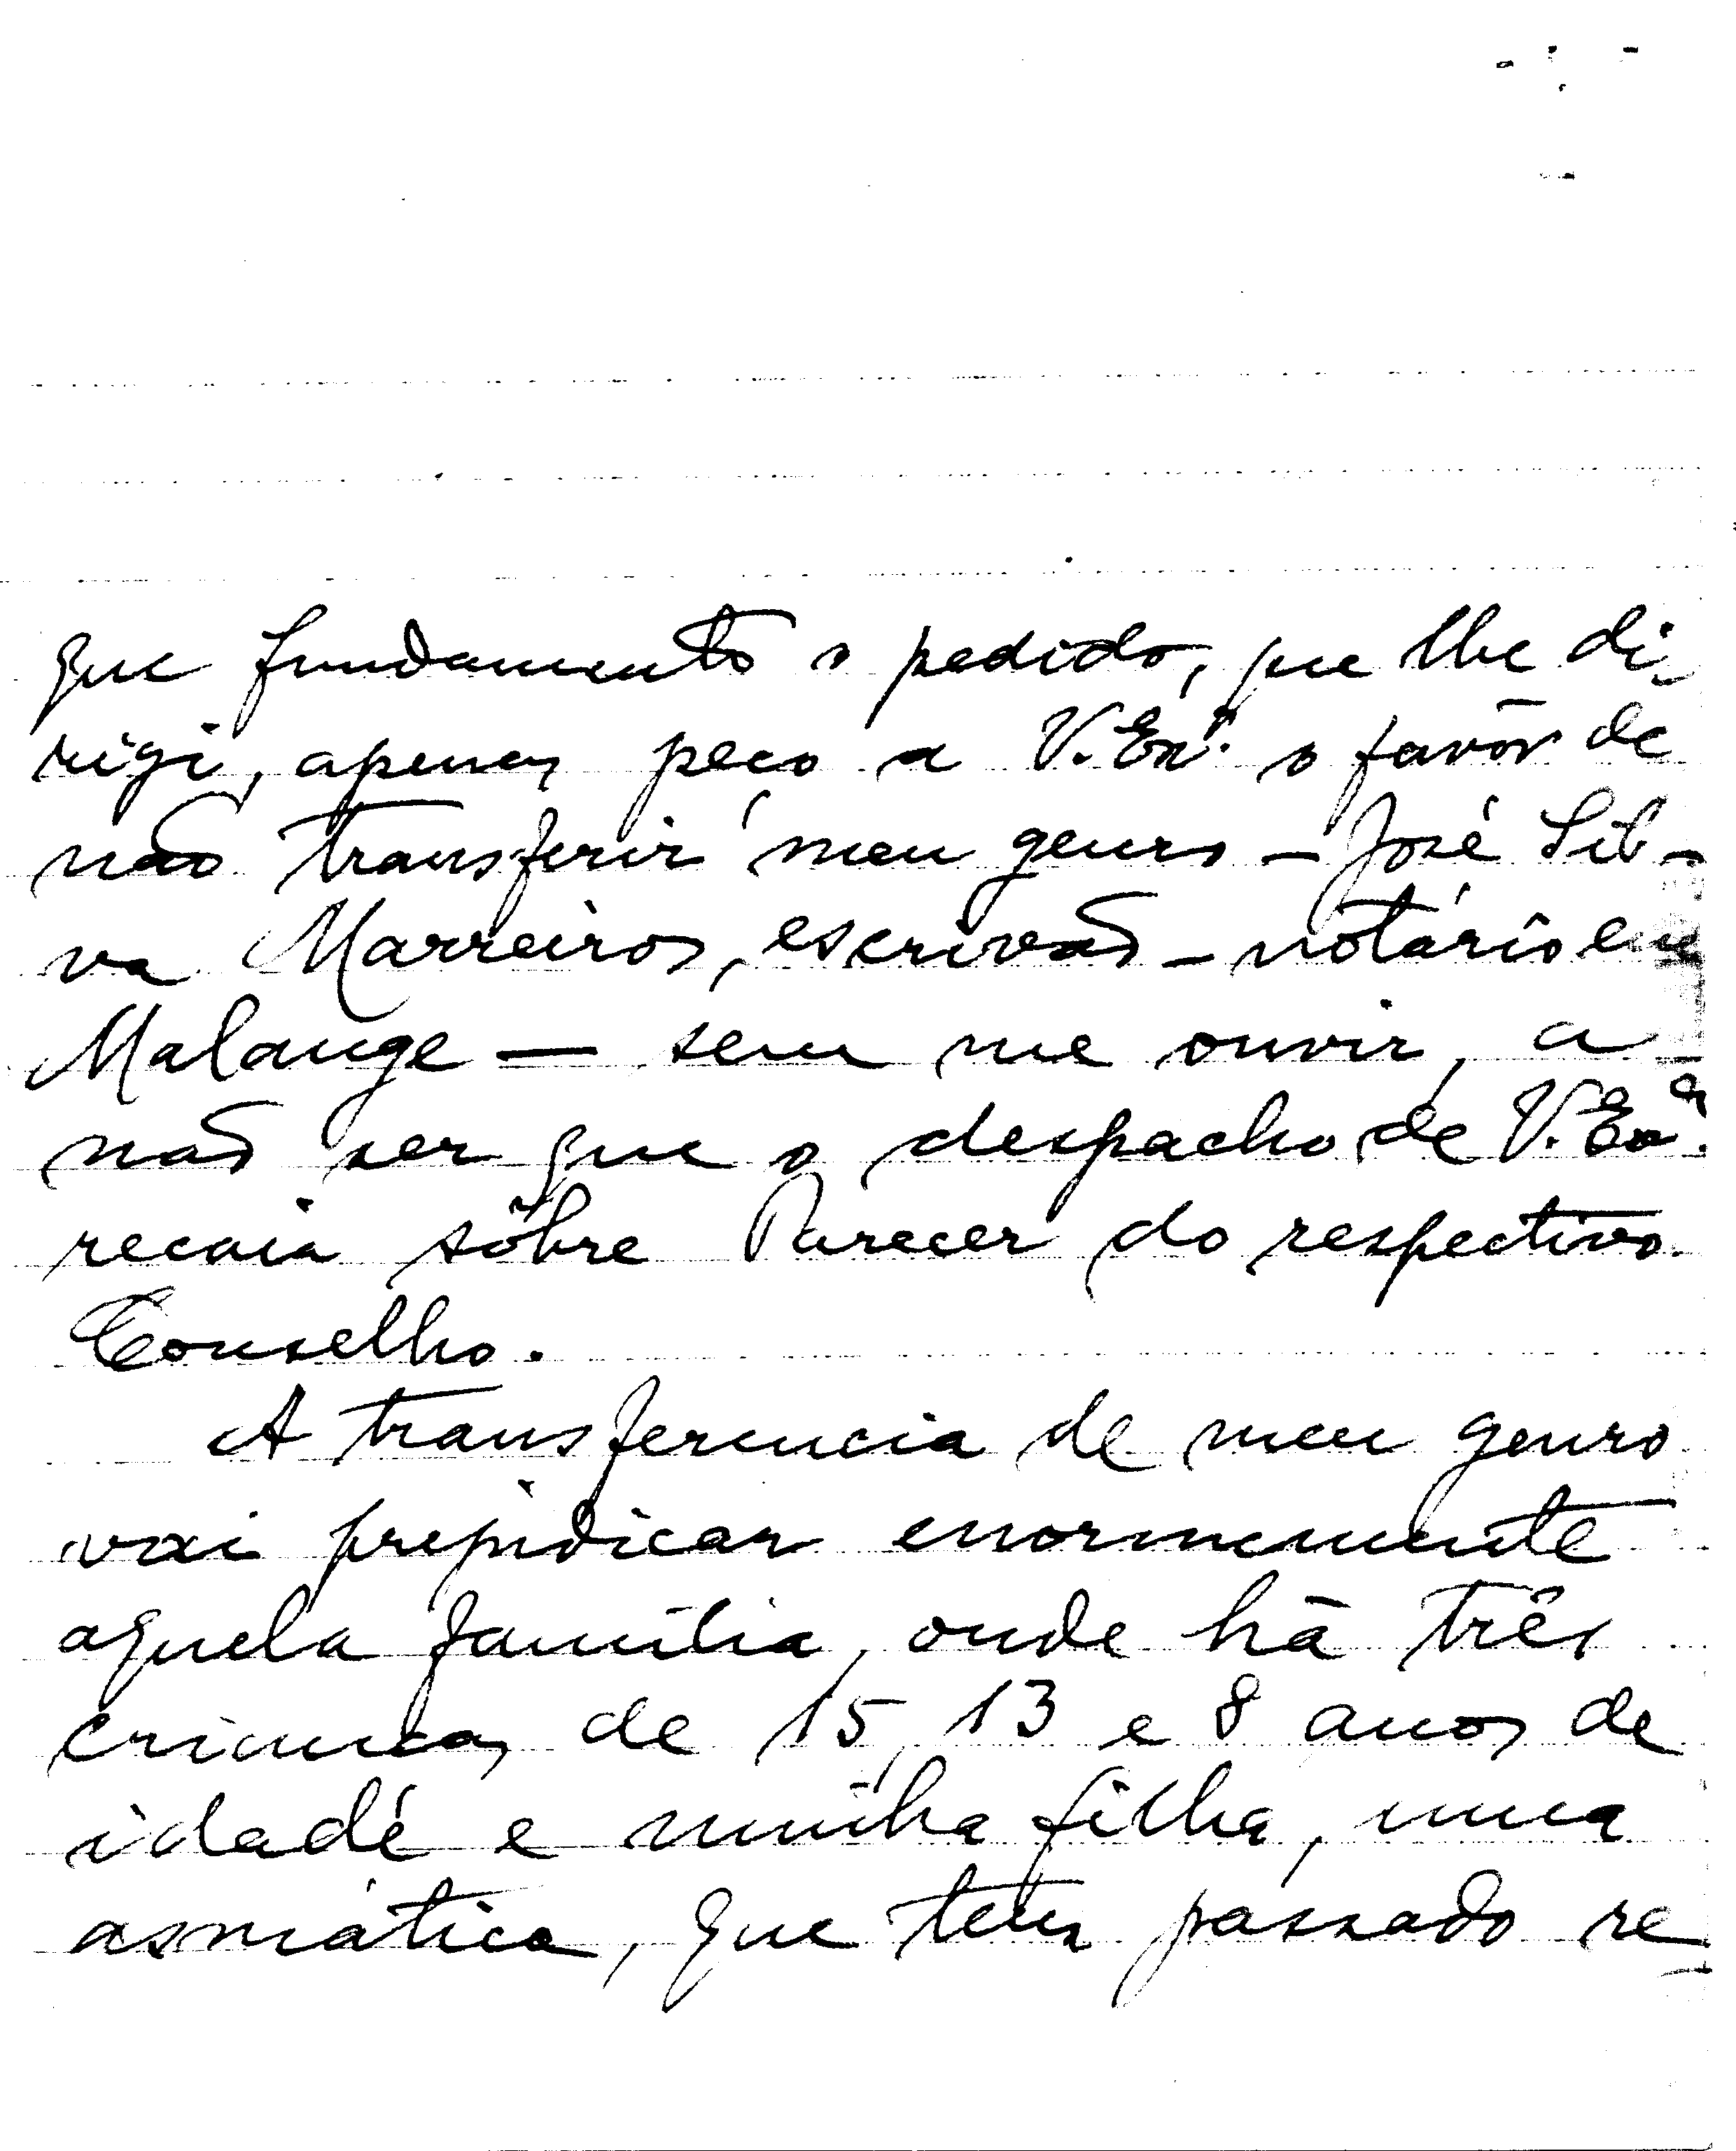 que fundamento o pedido, que lhe di-
rigi, apenas peço a V. Exª. o favôr de
não transferir meu genro - José Sil-
va Marreiros, escrivão-notário em
Malange — sem me ouvir, a
não ser que o despacho de V. Exª.
recaia sôbre Parecer do respectivo
Conselho.
A transferencia de meu genro
vai prejudicar enormemente
aquela família, onde há três
crianças de 15, 13 e 8 anos de
idade e minha filha, uma
asmática, que tem passado re-